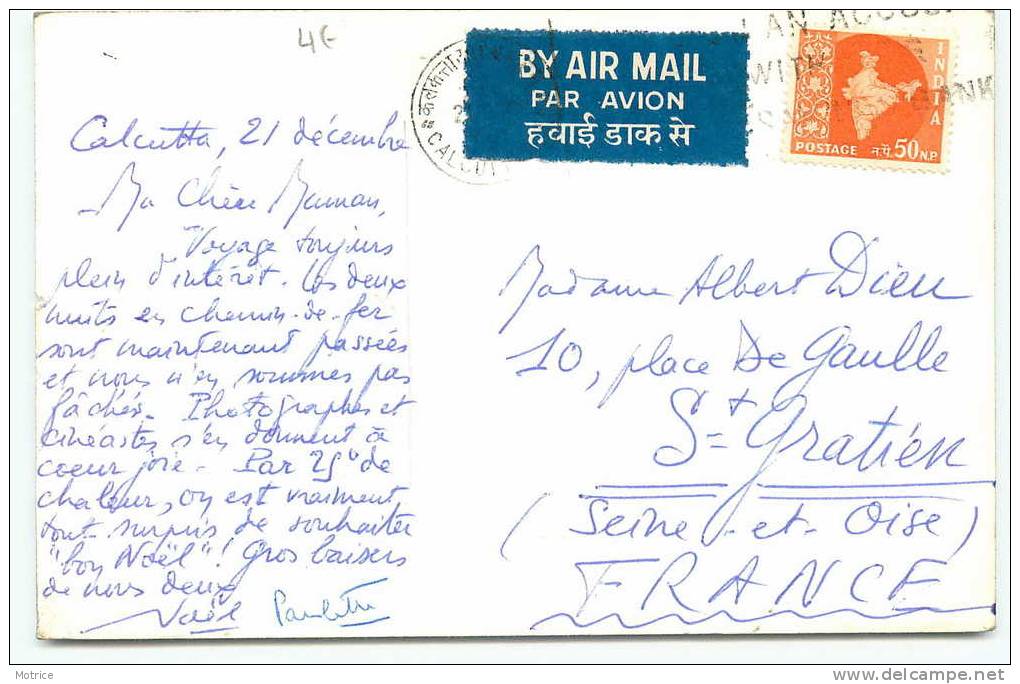 4€
BY AIR MAIL
PAR AVION
हवाई डाक से
CALCUTTA
AN ACCOU
WITH
BANK
INDIA
POSTAGE न.पै. 50 N.P.
Calcutta, 21 décembre
Ma Chère Maman,
Voyage toujours
plein d'intérêt. Les deux
nuits en chemin-de-fer
sont maintenant passées
et nous n'en sommes pas
fâchés. Photographes et
cinéastes s'en donnent à
coeur joie. Par 25° de
chaleur, on est vraiment
tout surpris de souhaiter
"bon Noël"! Gros baisers
de nous deux
Noël Paulette
Madame Albert Dieu
10, place De Gaulle
St Gratien
(Seine-et-Oise)
FRANCE
Motrice
delcampe.net